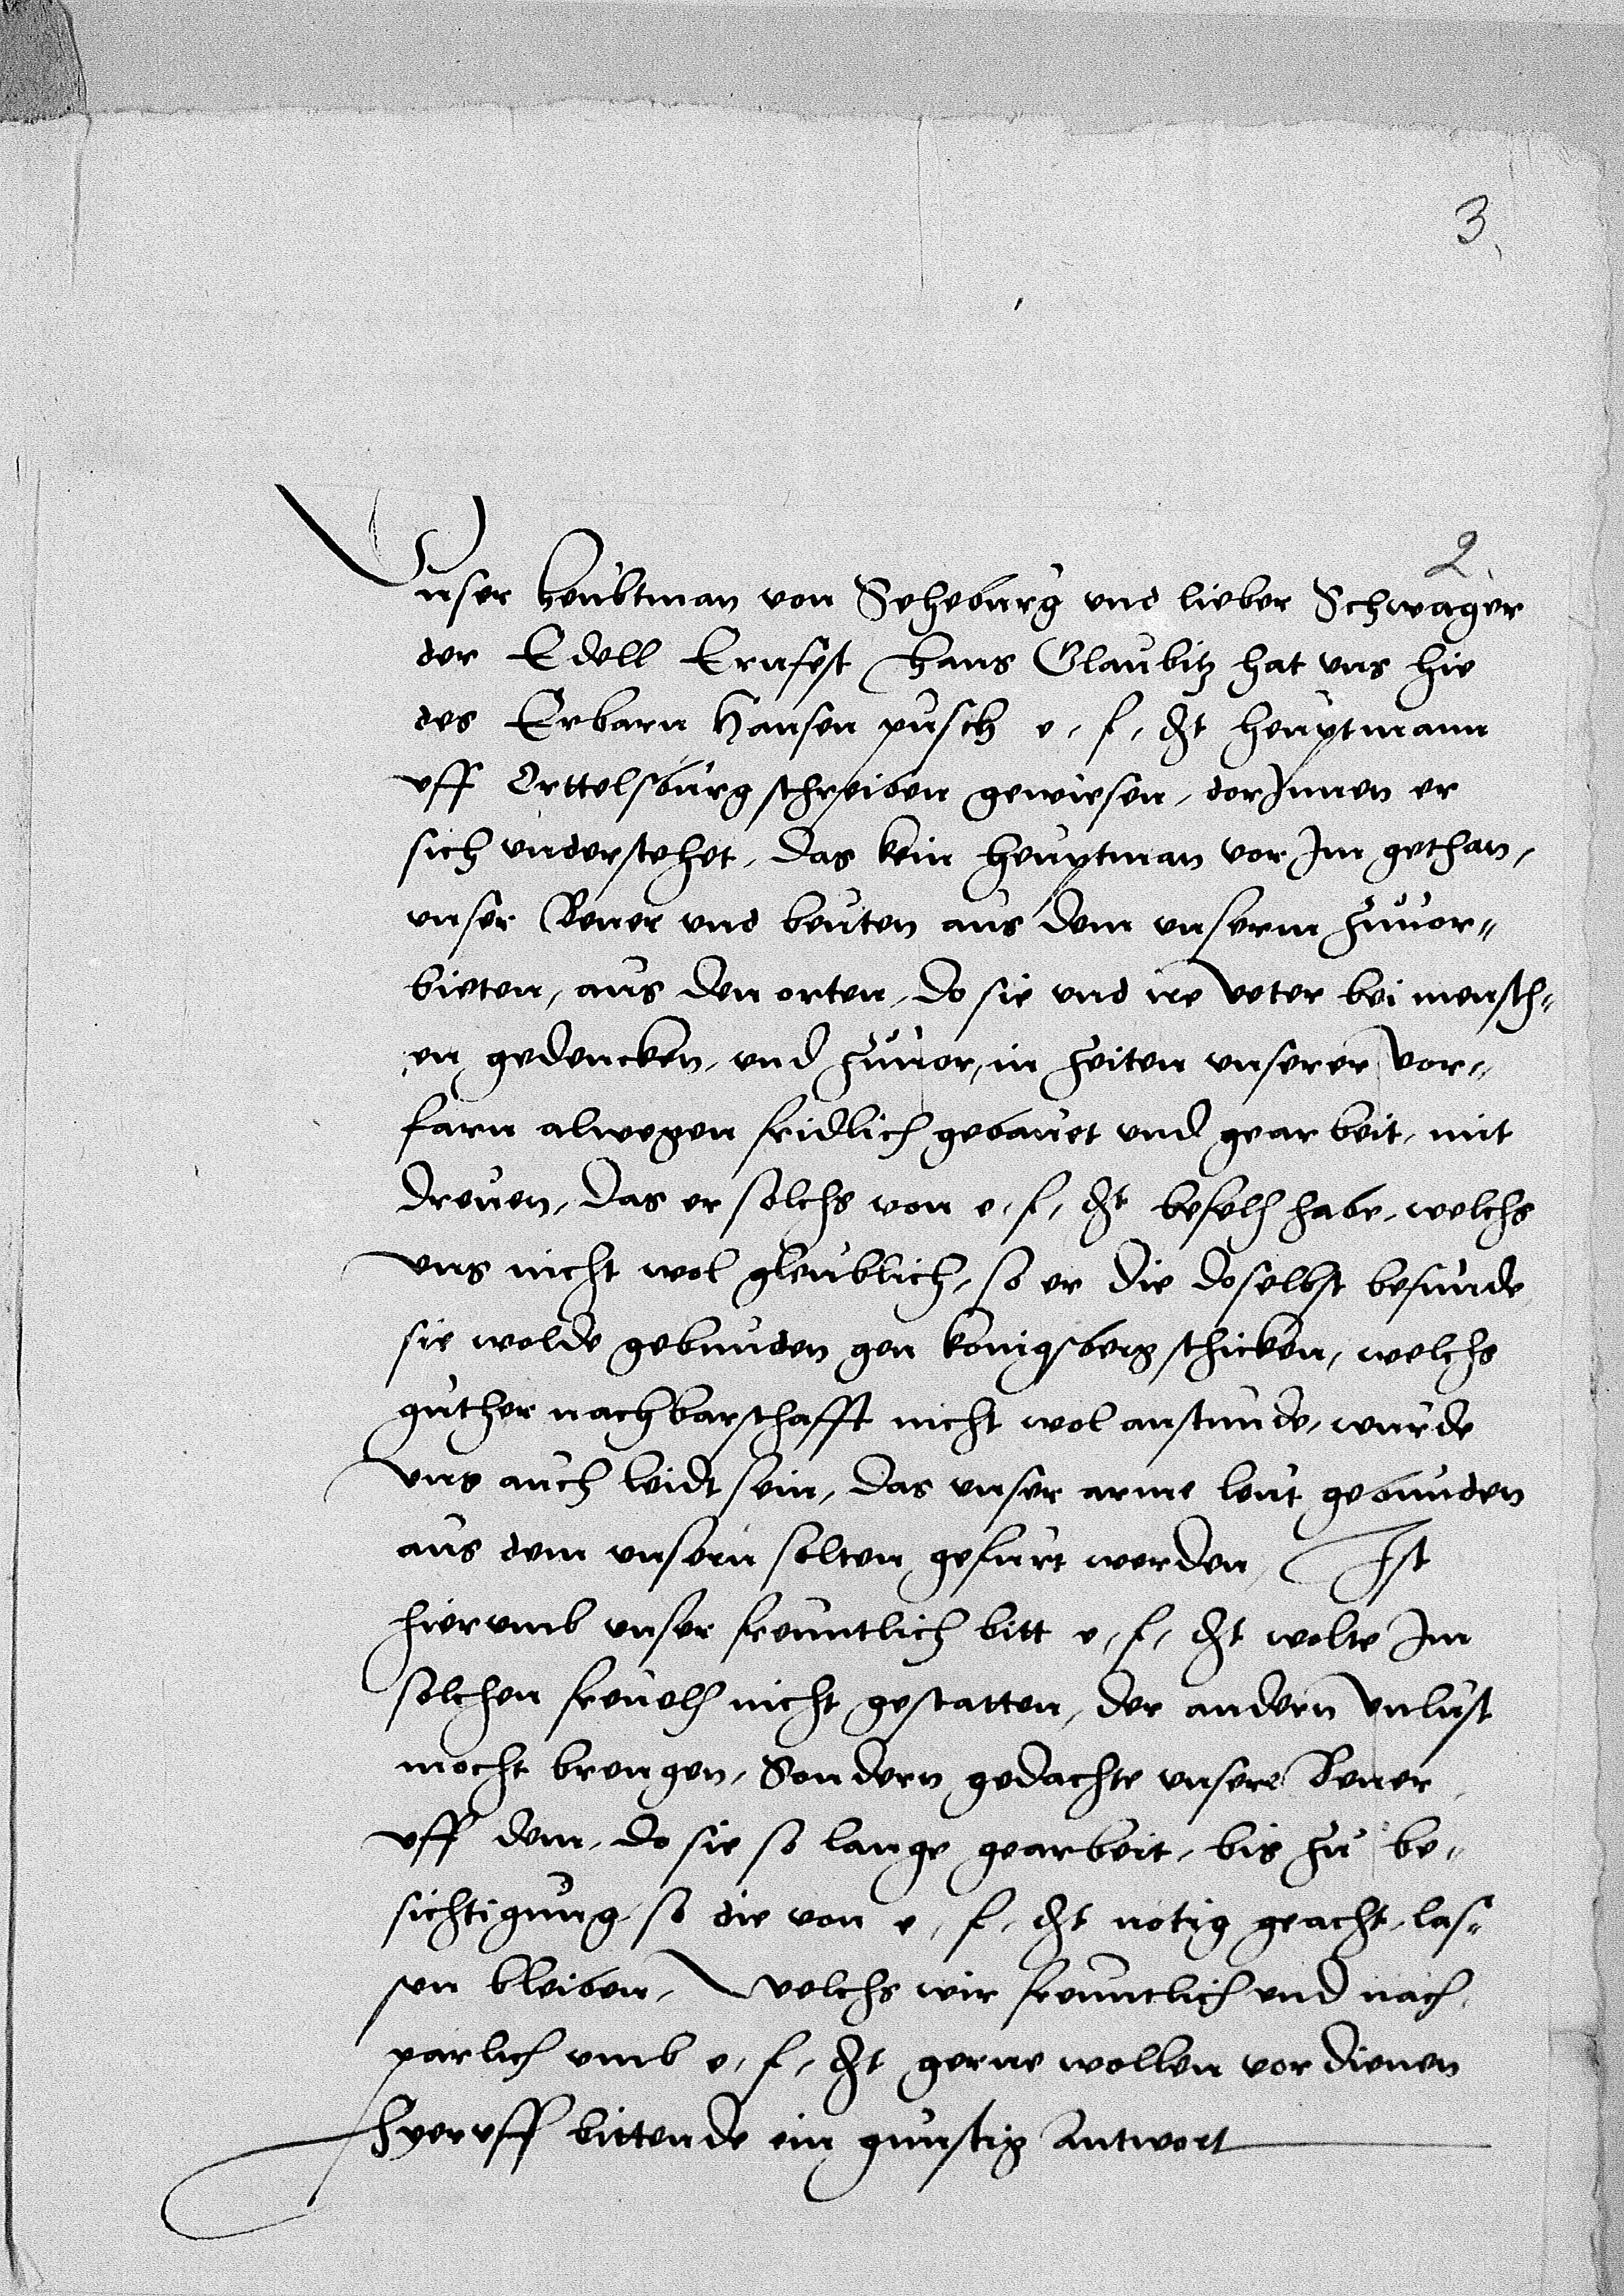 3
2.
Vnser heubtman von Seheburg vnd lieber Schwager
der Edell Ernfest Hans Glaubitz hat vns hie
des Erbarn Hansen pusch e, f, dt heuptmann
vff Orttelsburg schreiben gewiesen, dor Innen er
sich understehet, das kein heuptman vor Im gethan,
vnser Bener vnd beuten aus dem vnserm zuuor-
bieten, aus den orten, do sie vnd ire veter bei mensch-
en gedencken, vnd zuuor, in zeiten vnserer vor-
farn alwegen fridlich gebauet vnd gearbeit, mit
dreuen, das er solchs von e, f, dt befelh habe, welchs
vns nicht wol gleublich, so er die doselbst befunde
sie wolde gebunden gen konigsberg schicken, welchs
guther nachbarschafft nicht wol anstunde, wurde
vns auch leidt sein, das vnser arme leut gebunden
aus dem vnsern solten gefurt werden, Ist
hierumb vnser freuntlich bitt e, f, dt wolte Im
solchen freuelh nicht gestatten, der andern vnlust
mocht brengen, Sondern gedachte vnsere Bener
vff dem, do sie so lange gearbeit, bis zu be-
sichtigung, so die von e, f, dt notig geacht, las-
sen bleiben, welchs wir freuntlich vnd nach
parlich vmb e, f, dt gerne wollen vordienen
Hyervff bittende ein gunstig Antwort